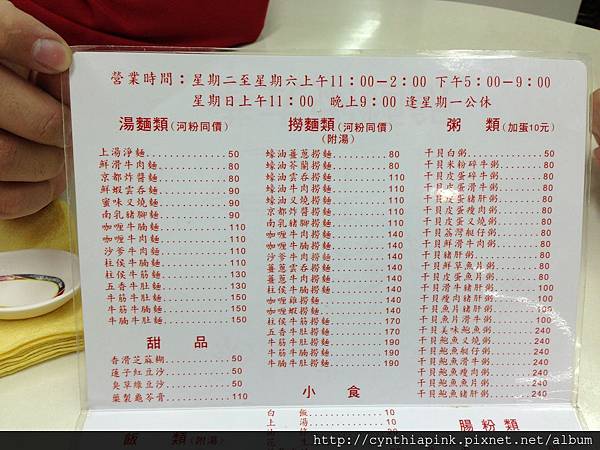 營業時間：星期二至星期六上午11：00－2：00 下午5：00－9：00
星期日上午11：00 晚上9：00 逢星期一公休
湯麵類(河粉同價)
上湯淨麵 50
鮮滑牛肉麵 80
京都炸醬麵 80
鮮蝦雲吞麵 90
蜜味叉燒麵 90
南乳豬腳麵 90
咖喱牛腩麵 110
咖喱牛肉麵 110
沙爹牛肉麵 110
柱侯牛腩麵 110
柱侯牛筋麵 130
五香牛肚麵 130
牛筋牛肚麵 150
牛腩牛筋麵 150
牛腩牛肚麵 150
甜 品
香滑芝麻糊 50
蓮子紅豆沙 50
臭草綠豆沙 50
藥製龜苓膏 110
飯 類(附湯)
撈麵類(河粉同價)
(附湯)
蠔油薑蔥撈麵 80
蠔油芥蘭撈麵 80
蠔油雲吞撈麵 110
蠔油牛肉撈麵 110
蠔油叉燒撈麵 110
京都炸醬撈麵 110
南乳豬腳撈麵 110
咖喱牛腩撈麵 140
咖喱牛肉撈麵 140
沙爹牛肉撈麵 140
薑蔥雲吞撈麵 140
薑蔥牛肉撈麵 140
柱侯牛腩撈麵 140
咖喱雞撈麵 140
柱侯牛筋撈麵 170
五香牛肚撈麵 170
牛筋牛肚撈麵 190
牛腩牛筋撈麵 190
牛腩牛肚撈麵 190
小 食
白飯 10
上湯 10
粥 類(加蛋10元)
干貝白粥 50
干貝米粉碎牛粥 80
干貝皮蛋碎牛粥 80
干貝皮蛋滑牛粥 80
干貝皮蛋豬肝粥 80
干貝皮蛋瘦肉粥 80
干貝皮蛋叉燒粥 80
干貝荔灣艇仔粥 80
干貝鮮滑牛肉粥 80
干貝豬肝粥 80
干貝鮮草魚片粥 80
干貝皮蛋魚片粥 80
干貝滑牛豬肝粥 100
干貝瘦肉豬肝粥 100
干貝魚片豬肝粥 100
干貝魚片滑牛粥 100
干貝美味鮑魚粥 240
干貝鮑魚叉燒粥 240
干貝鮑魚艇仔粥 240
干貝鮑魚滑牛粥 240
干貝鮑魚瘦肉粥 240
干貝鮑魚魚片粥 240
干貝鮑魚豬肝粥 240
腸粉類
http://cynthiapink.pixnet.net/album